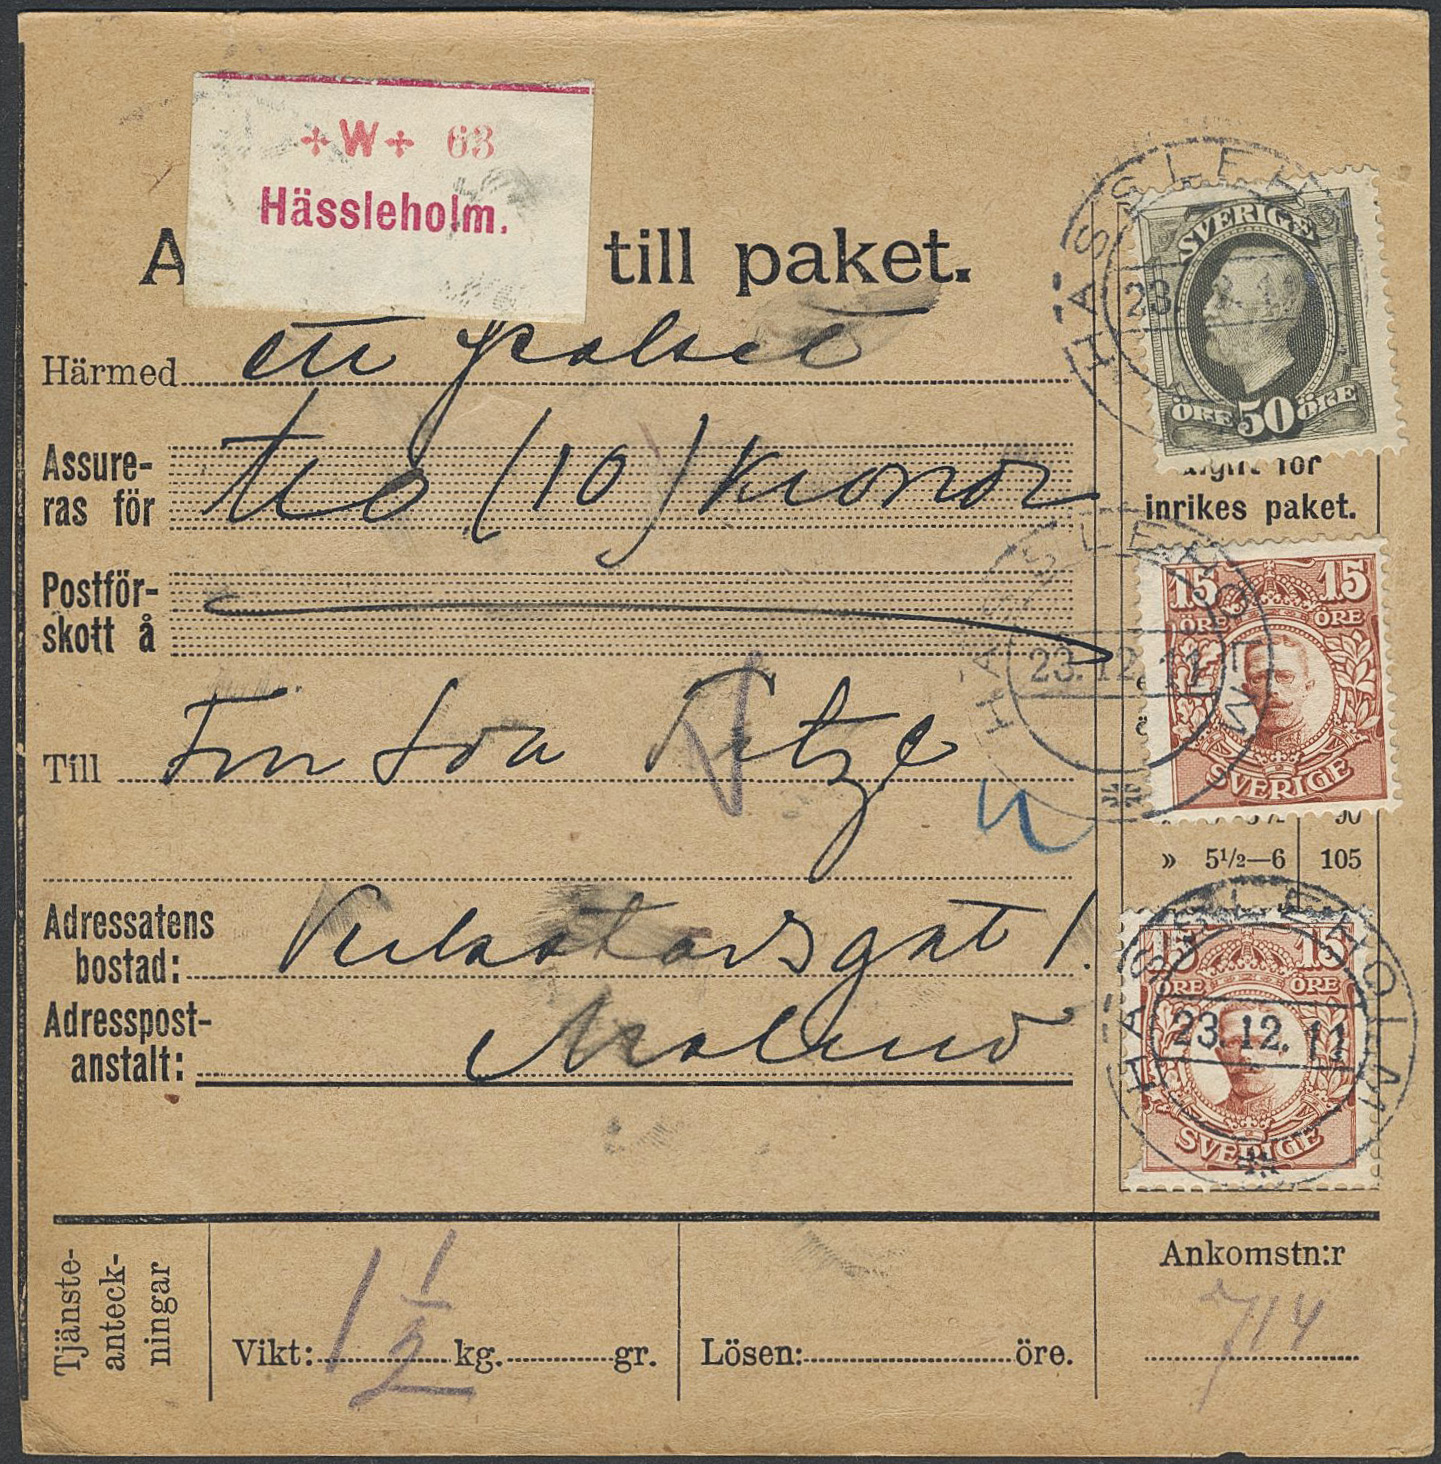 +W+ 63
Hässleholm.
A till paket.
Härmed ett paket
Assure-
ras för tio (10) kronor
Postför-
skott å
Till
Adressatens
bostad: 1.
Adresspost-
anstalt: Malmö
HÄSSLEHOLM
23.
SVERIGE
ÖRE 50 ÖRE
inrikes paket.
15 15
ÖRE ÖRE
SVERIGE
HÄSSLEHOLM
23.12.11
» 5½—6 105
15 15
ÖRE ÖRE
SVERIGE
HÄSSLEHOLM
23.12.11
Tjänste-
anteck-
ningar
Vikt: 1 1/2 kg. gr.
Lösen: öre.
Ankomstn:r
714